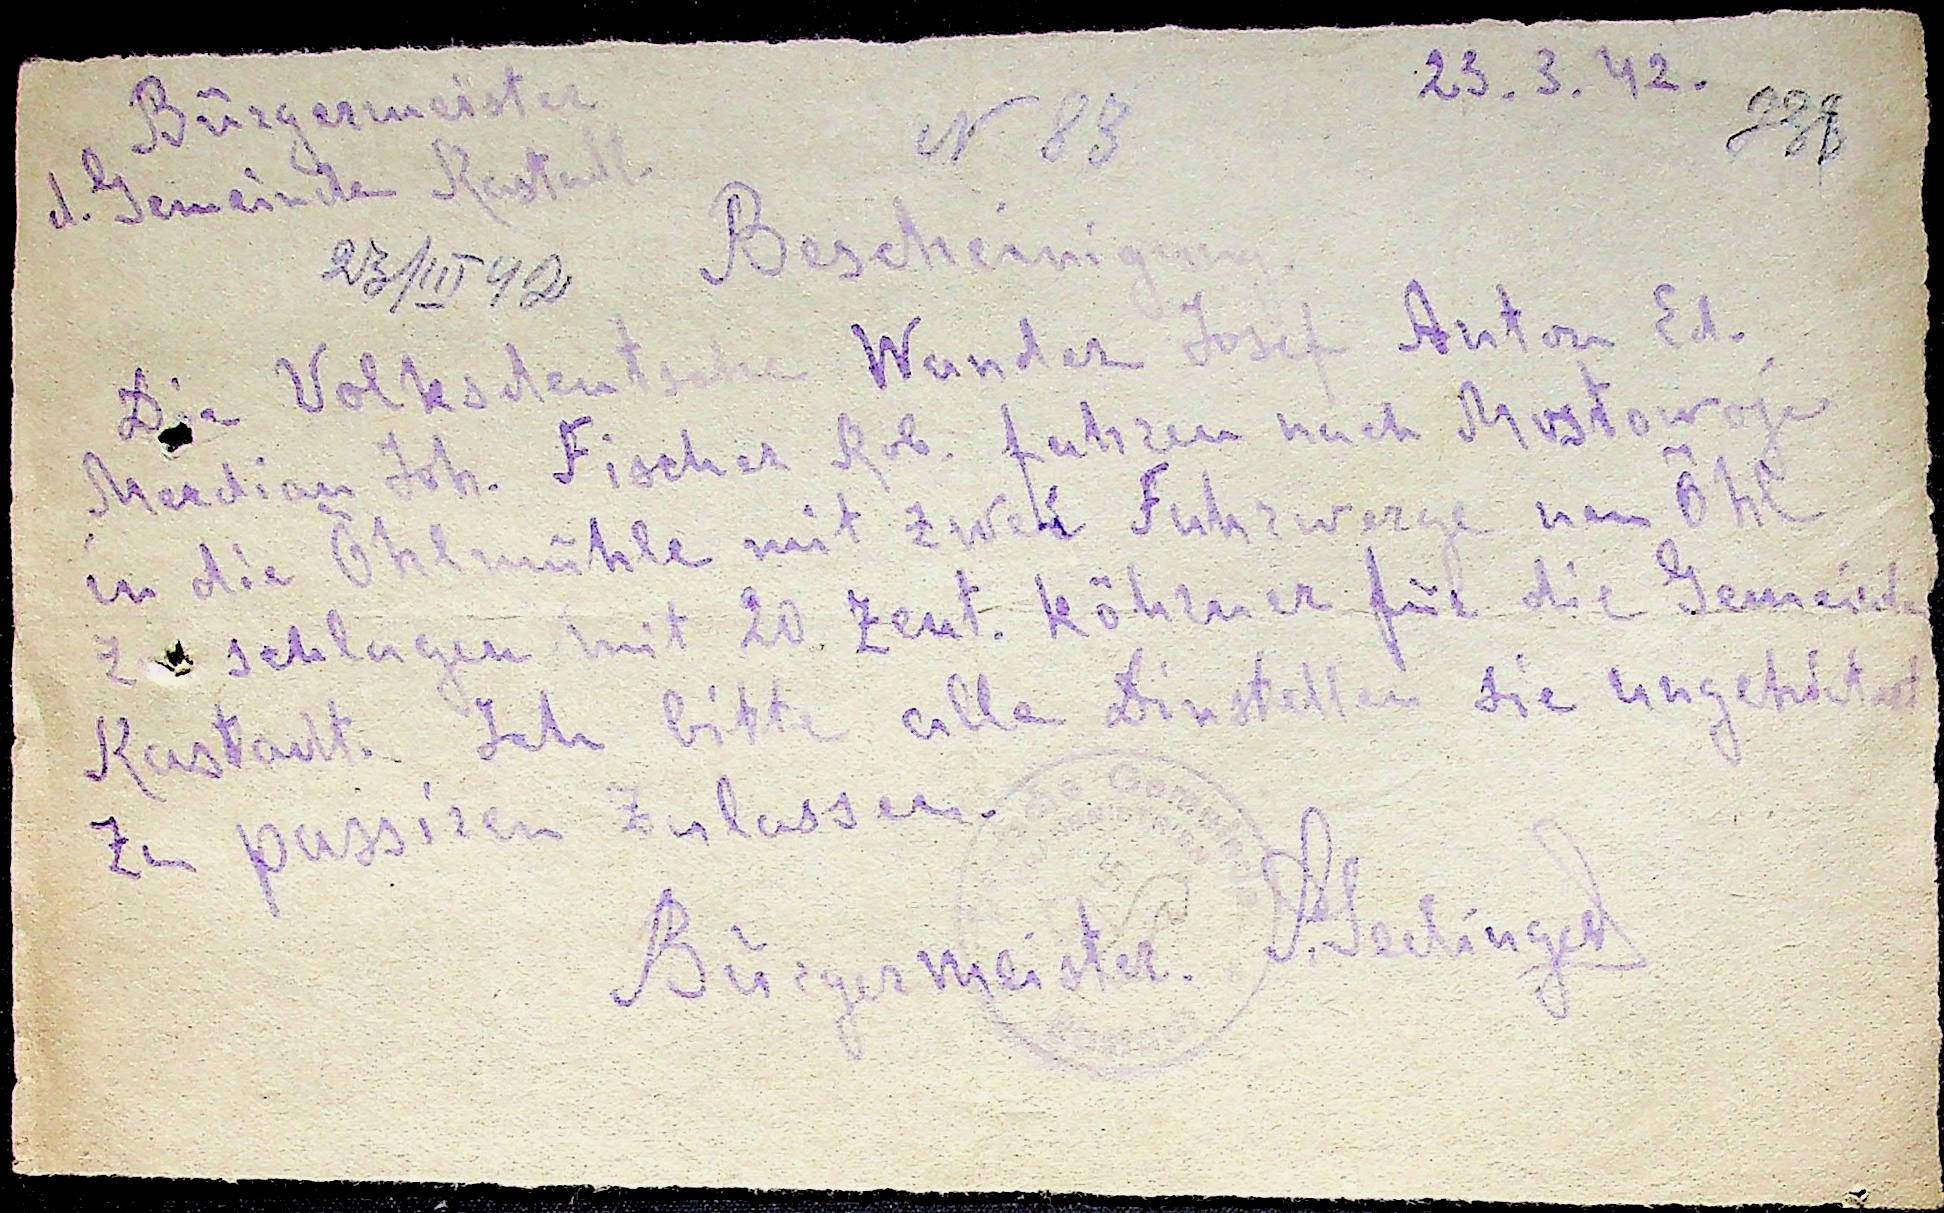 Bürgermeister
23.3.42.
d. Gemeinde Rastadt.
N 83
23/III 42
Bescheinigung.
Die Volksdeutsche Wander Josef Anton Ed.
Merdian Joh. Fischer Rob. fuhren nach Mostowoje
in die Öhlmühle mit zwei Fuhrwerge um Öhl
zu schlagen mit 20 Zent. köhrner für die Gemeinde
Rastadt. Ich bitte alle Dinstellen sie ungehindert
zu passiren zulassen.
Bürgermeister.